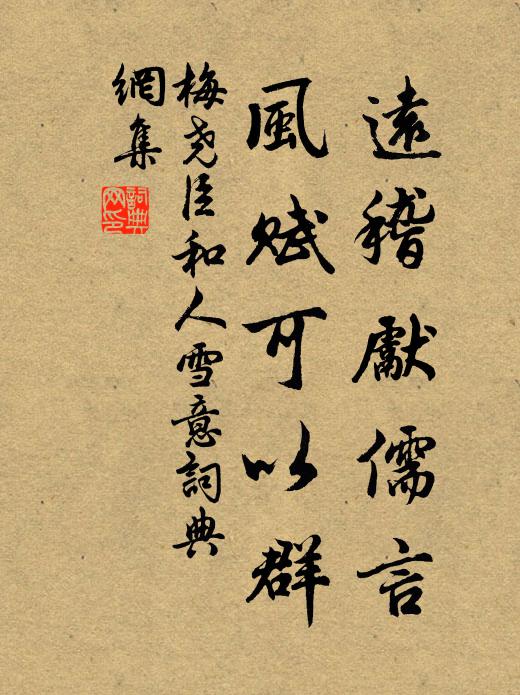 遠稽獻儒言
風賦可以群
梅堯臣和人雪意詞典
網集
詞典網印